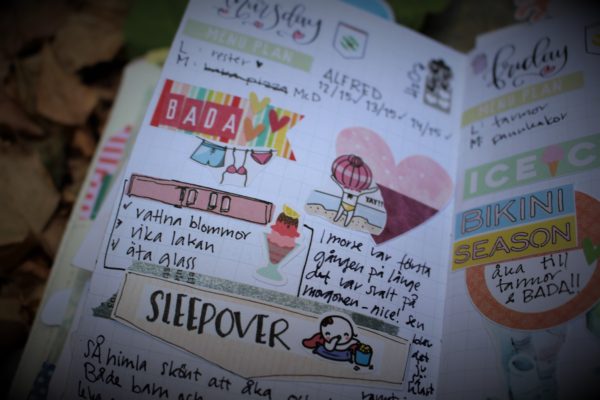 Thursday
MENU PLAN
L: rester
M: bada pizza McD
ALFRED
12/15, 13/15 14/15
BADA
TO DO
vattna blommor
vika lakan
äta glass
YAY!!
I morse var första
gången på länge
det var svalt på
morgonen - nice! Sen
blev
det
ju
SLEEPOVER
Så himla skönt att åka och
Både barn och
Friday
MENU PLAN
L: farmor
M: pannkakor
ICE C
BIKINI
SEASON
åka till
farmor
& BADA!!